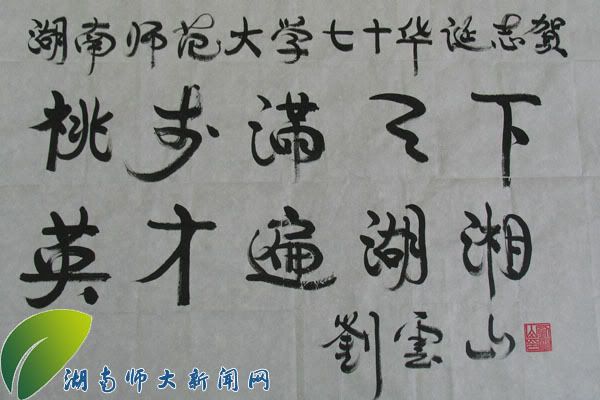 湖南师范大学七十华诞志贺
桃李满天下
英才遍湖湘
劉雲山
湖南师大新闻网